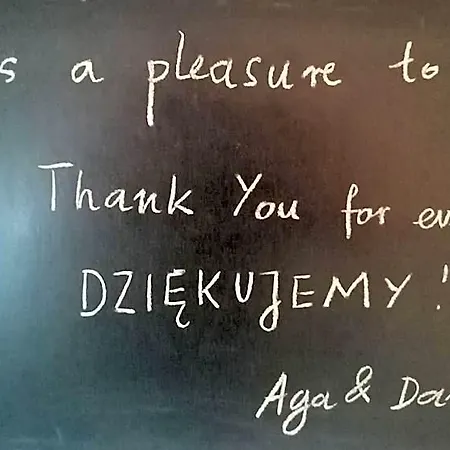 s a pleasure to
Thank You for ev
DZIĘKUJEMY!
Aga & Da